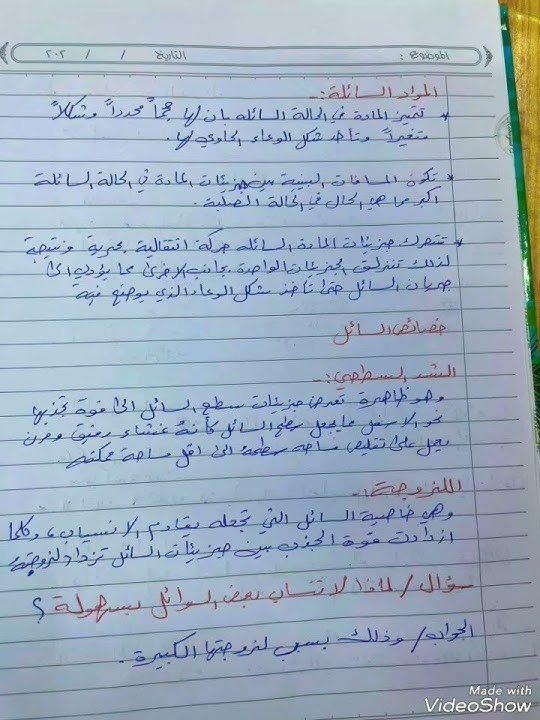 الموضوع :
التاريخ / / ٢٠٢
المواد السائلة :-
* تتميز المادة في الحالة السائله بان لها حجماً محدداً وشكلاً
متغيراً وتأخذ شكل الوعاء الحاوي لها .
* تكون المسافات البينية بين جزيئات المادة في الحالة السائلة
اكبر مما هي الحال في الحالة الصلبة .
* تتحرك جزيئات المادة السائله حركة انتقالية بحرية ونتيجة
لذلك تنزلق الجزيئات الواحدة بجانب الاخرى مما يؤدي الى
جريان السائل حتى تأخذ شكل الوعاء الذي يوضع فيه
خصائص السائل
الشد السطحي :-
وهو ظاهرة تعرض جزيئات سطح السائل الى قوة تجذبها
نحو الاسفل مما يجعل سطح السائل كأنه غشاء رقيق ومرن
يعمل على تقليص مساحه سطحه الى اقل مساحة ممكنه .
اللزوجة :-
وهي خاصية السائل التي تجعله يقاوم الانسياب ، وكلما
ازدادت قوة الجذب بين جزيئات السائل تزداد لزوجته
سؤال / لماذا لا تنساب بعض السوائل بسهولة ؟
الجواب / وذلك بسبب لزوجتها الكبيرة .
Made with
VideoShow